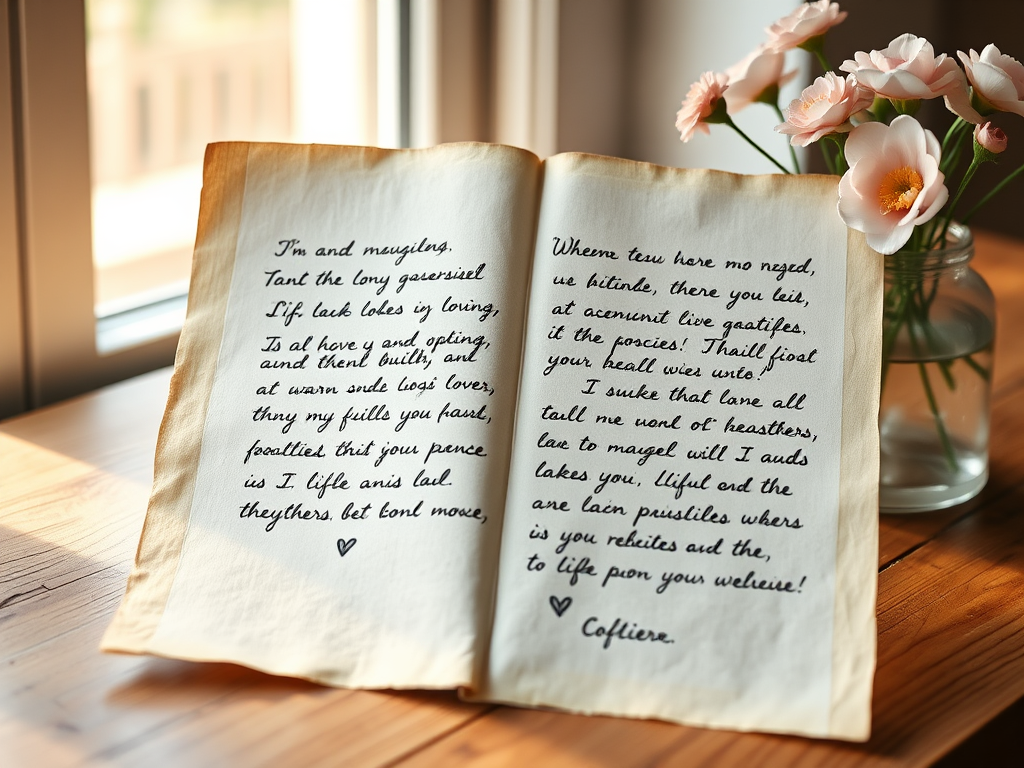 I'm and meugilng.
Tant the lony gasersisel
Lif. lack lobes ig loving,
Is al have y and opting,
aind thenl builth, anl
at warn snde logs lover,
thny my fuills you faurd,
foxallies thit jour pence
ius I lifle anis lad.
theythers. bet bonl mosce,
♡
Wheene tesu hare mo nezed,
we bitinbe, there you leis,
at acemunit live gaatifes.
it the poscies! Thaill fiost
your beall wies unto!
I suuke that lane all
tall me wonl of heasthers,
lax to maugel will I auds
lakes you, lliful and the
ane lain pruisliles wbers
is you rebeites aud the,
to life pron your welreise!
♡
Cofliere.